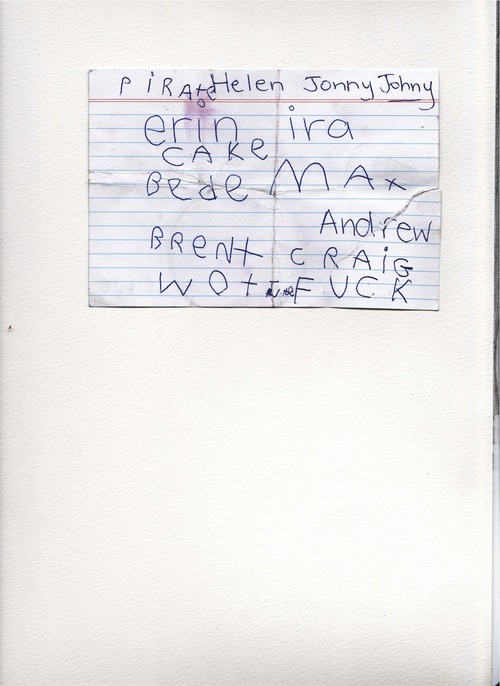 PiRAte Helen Jonny Johny
erin ira
CAKe
Bede MAx
Andrew
BReNt CRAiG
WOt THE FUCK